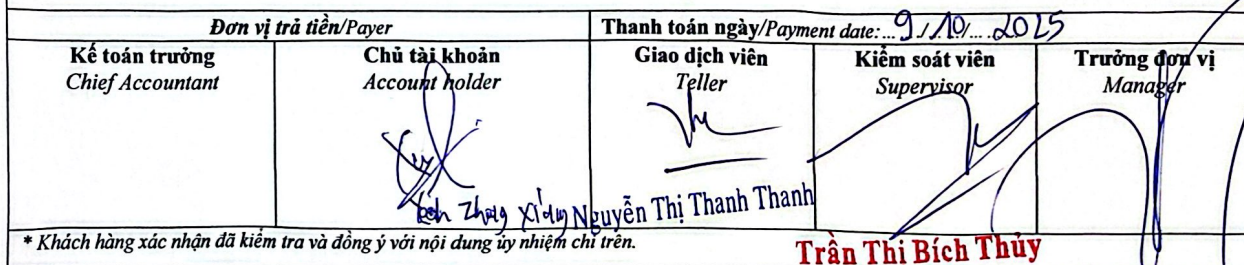 Đơn vị trả tiền/Payer
Thanh toán ngày/Payment date:...9./.10/....2025
Kế toán trưởng
Chief Accountant
Chủ tài khoản
Account holder
Giao dịch viên
Teller
Kiểm soát viên
Supervisor
Trưởng đơn vị
Manager
Zhang
Nguyễn Thị Thanh Thanh
* Khách hàng xác nhận đã kiểm tra và đồng ý với nội dung ủy nhiệm chi trên.
Trần Thị Bích Thủy